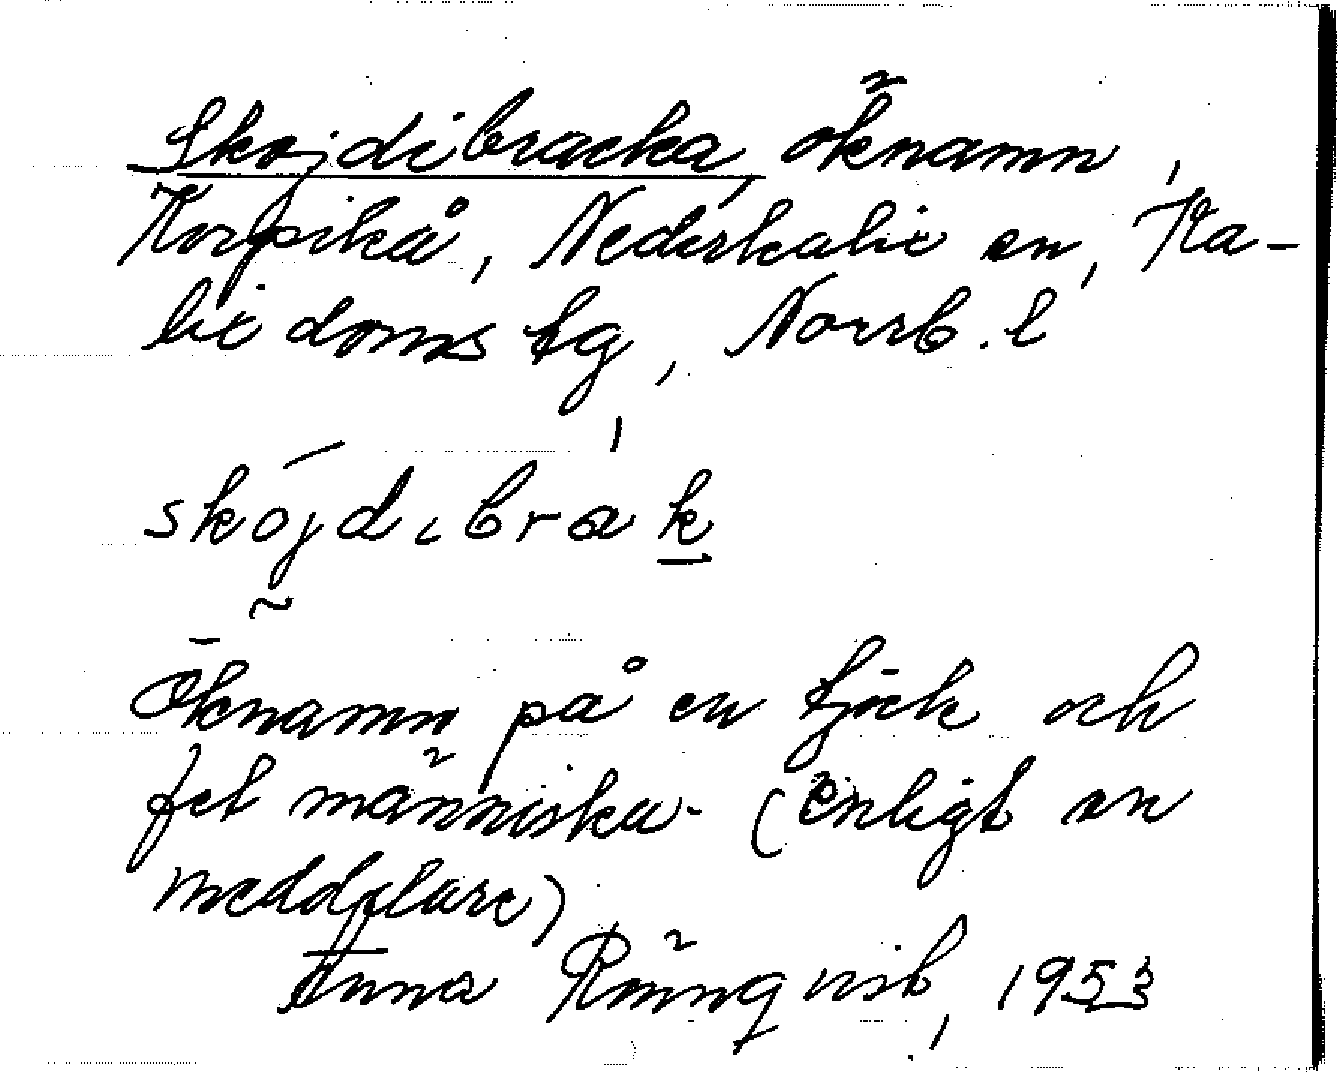 Skojdibracka, öknamn,
Korpikå, Nederkalix sn, Ka-
lix domstg, Norrb. l
skojdıbrak
Öknamn på en tjock och
fet människa. (enligt en
meddelare)
Anna Rönnqvist, 1953